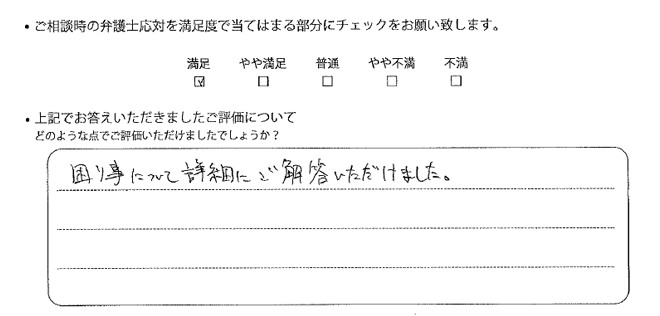 ・ご相談時の弁護士応対を満足度で当てはまる部分にチェックをお願い致します。
満足 やや満足 普通 やや不満 不満
☑ □ □ □ □
・上記でお答えいただきましたご評価について
どのような点でご評価いただけましたでしょうか？
困り事について詳細にご解答いただけました。